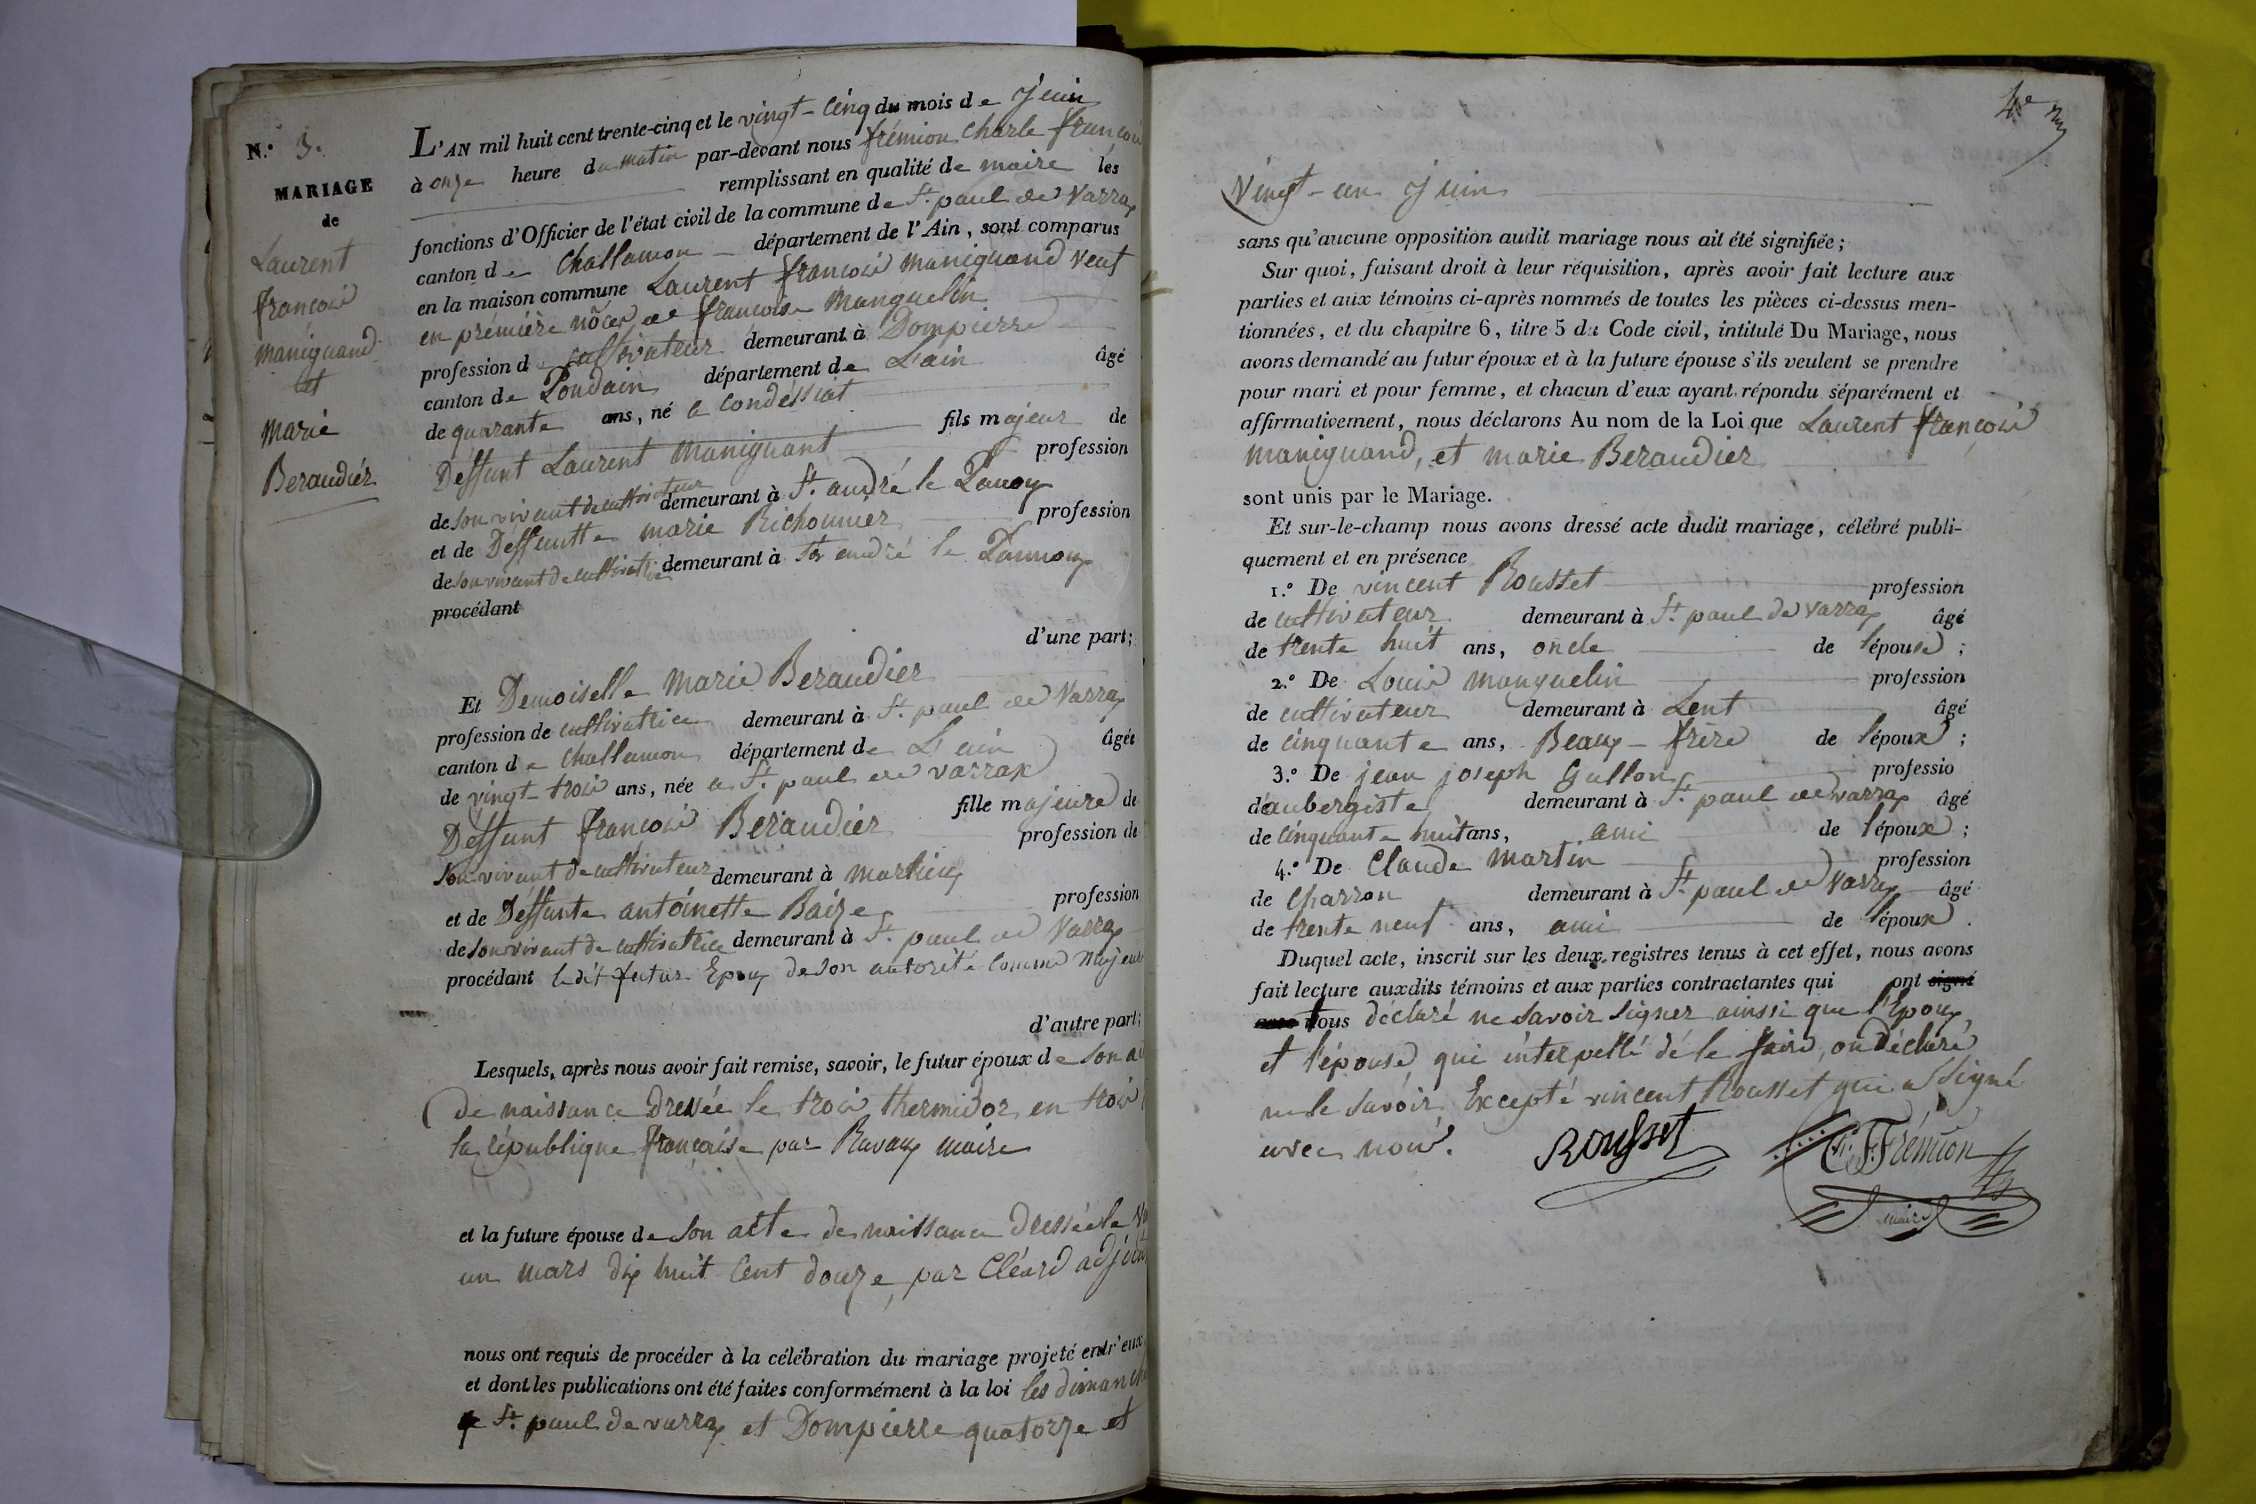 N.° 3.
MARIAGE
de
Laurent
françois
maniguand
et
marie
Beraudier
L'AN mil huit cent trente-cinq et le vingt-cinq du mois de Juin
à onze heure du matin par-devant nous frémion Charle françois
remplissant en qualité de maire les
fonctions d'Officier de l'état civil de la commune de St. paul de Varrax
canton de Challamon département de l'Ain, sont comparus
en la maison commune Laurent françois maniguand veuf
en prémière nôces de francoise Manguelin
profession de cultivateur demeurant à Dompierre
canton de Pondain département de L'ain âgé
de quarante ans, né a Condéssiat
fils majeur de
Déffunt Laurent Maniguant profession
de son vivant de cultivateur demeurant à St. andré le Panoux
et de Déffuntte marie Richonnier profession
de son vivant de cultivatrice demeurant à St. andré le Pannoux
procédant
d'une part;
Et Demoiselle Marie Beraudier
profession de cultivatrice demeurant à St. paul de Varrax
canton de Challamon département de L'ain âgée
de vingt-trois ans, née a St. paul de varrax
fille majeure de
Déffunt françois Béraudier profession de
son vivant de cultivateur demeurant à marlieux
et de Déffunte antoinette Baize profession
de son vivant de cultivatrice demeurant à St. paul de Varrax
procédant ledit futur Epoux de son autorité comme Majeur
d'autre part;
Lesquels, après nous avoir fait remise, savoir, le futur époux de son
de naissance Dressée le trois thermidor en trois
la république française par Ravaux maire
et la future épouse de son acte de naissance Dressée le
un mars dix huit cent douze, par Cléard adjoint
nous ont requis de procéder à la célébration du mariage projeté entr'eux
et dont les publications ont été faites conformément à la loi les dimanches
St. paul de varrax et Dompierre quatorze et
4e
Vingt-un Juin
sans qu'aucune opposition audit mariage nous ait été signifiée;
Sur quoi, faisant droit à leur réquisition, après avoir fait lecture aux
parties et aux témoins ci-après nommés de toutes les pièces ci-dessus men-
tionnées, et du chapitre 6, titre 5 du Code civil, intitulé Du Mariage, nous
avons demandé au futur époux et à la future épouse s'ils veulent se prendre
pour mari et pour femme, et chacun d'eux ayant répondu séparément et
affirmativement, nous déclarons Au nom de la Loi que Laurent françois
maniguand, et marie Beraudier
sont unis par le Mariage.
Et sur-le-champ nous avons dressé acte dudit mariage, célébré publi-
quement et en présence
1.° De vincent Rousset profession
de cultivateur demeurant à St. paul de varrax âgé
de trente huit ans, oncle de l'épouse;
2.° De Louis manguelin profession
de cultivateur demeurant à Lent âgé
de cinquante ans, Beaux-frère de l'époux;
3.° De jean joseph Gallon professio
d'aubergiste demeurant à St. paul de varrax âgé
de cinquante huit ans, ami de l'époux;
4.° De Claude Martin profession
de Charron demeurant à St. paul de Varrax âgé
de trente neuf ans, ami de l'époux.
Duquel acte, inscrit sur les deux registres tenus à cet effet, nous avons
fait lecture auxdits témoins et aux parties contractantes qui ont signé
avec tous déclaré ne savoir signer ainsi que l'Epoux
et l'épouse qui interpellé dé le faire, on déclaré
ne le savoir Excepté vincent Rousset qui a signé
avec nous.
Rousset
Ch. F. Frémion
maire